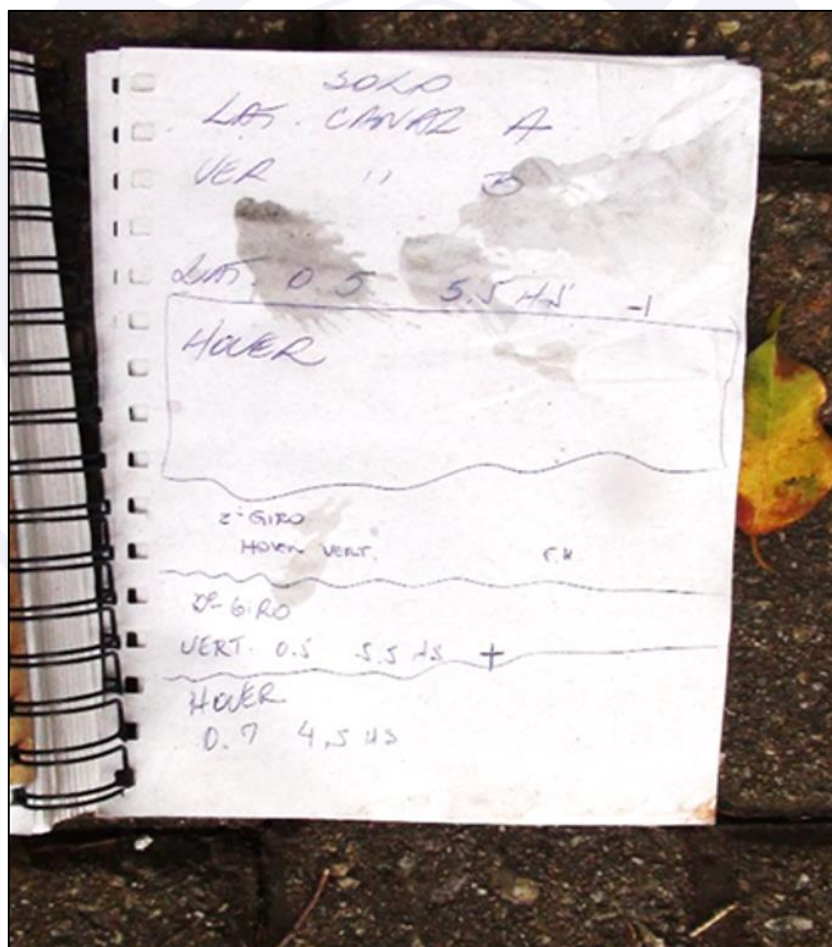 SOLO
LAT. CANAL A
VER " B
LAT. 0.5 5.5 HS -1
HOVER
2º GIRO
HOVER VERT.
GIRO
VERT. 0.5 5.5 HS +
HOVER
0.7 4.5 HS